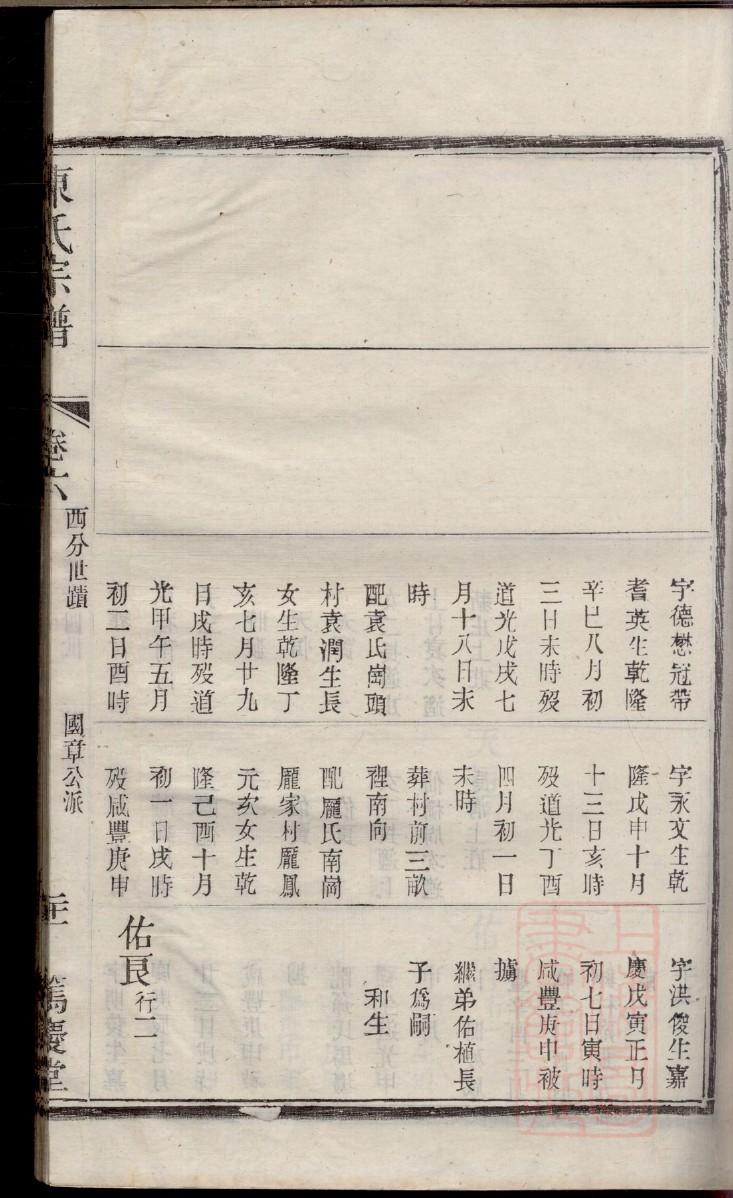 字德懋冠帶
耆英生乾隆
辛巳八月初
三日未時歿
道光戊戌七
月十八日未
時
配袁氏崗頭
村袁潤生長
女生乾隆丁
亥七月廿九
日戌時歿道
光甲午五月
初三日酉時
字永文生乾
隆戊申十月
十三日亥時
歿道光丁酉
四月初一日
未時
葬村前三畝
裡南向
配龐氏南崗
龐家村龐鳳
元次女生乾
隆己酉十月
初一日戌時
歿咸豐庚申
字洪俊生嘉
慶戊寅正月
初七日寅時
咸豐庚申被
擄
繼弟佑植長
子爲嗣
和生
佑良行二
陳氏宗譜
卷六
西分世蹟
國章公派
篤慶堂